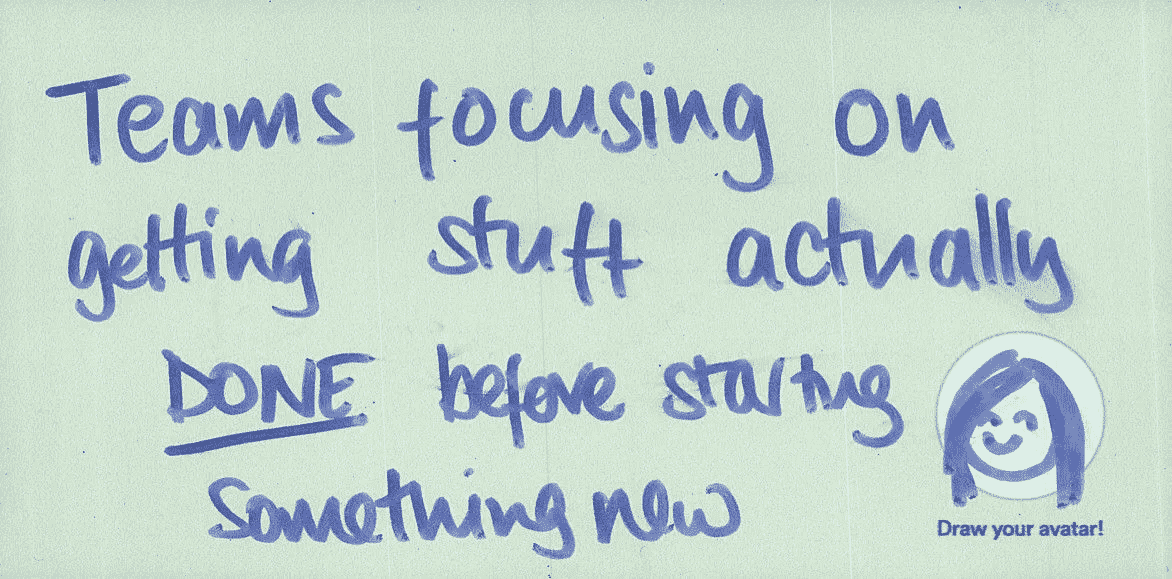 Teams focusing on
getting stuff actually
DONE before starting
something new
Draw your avatar!